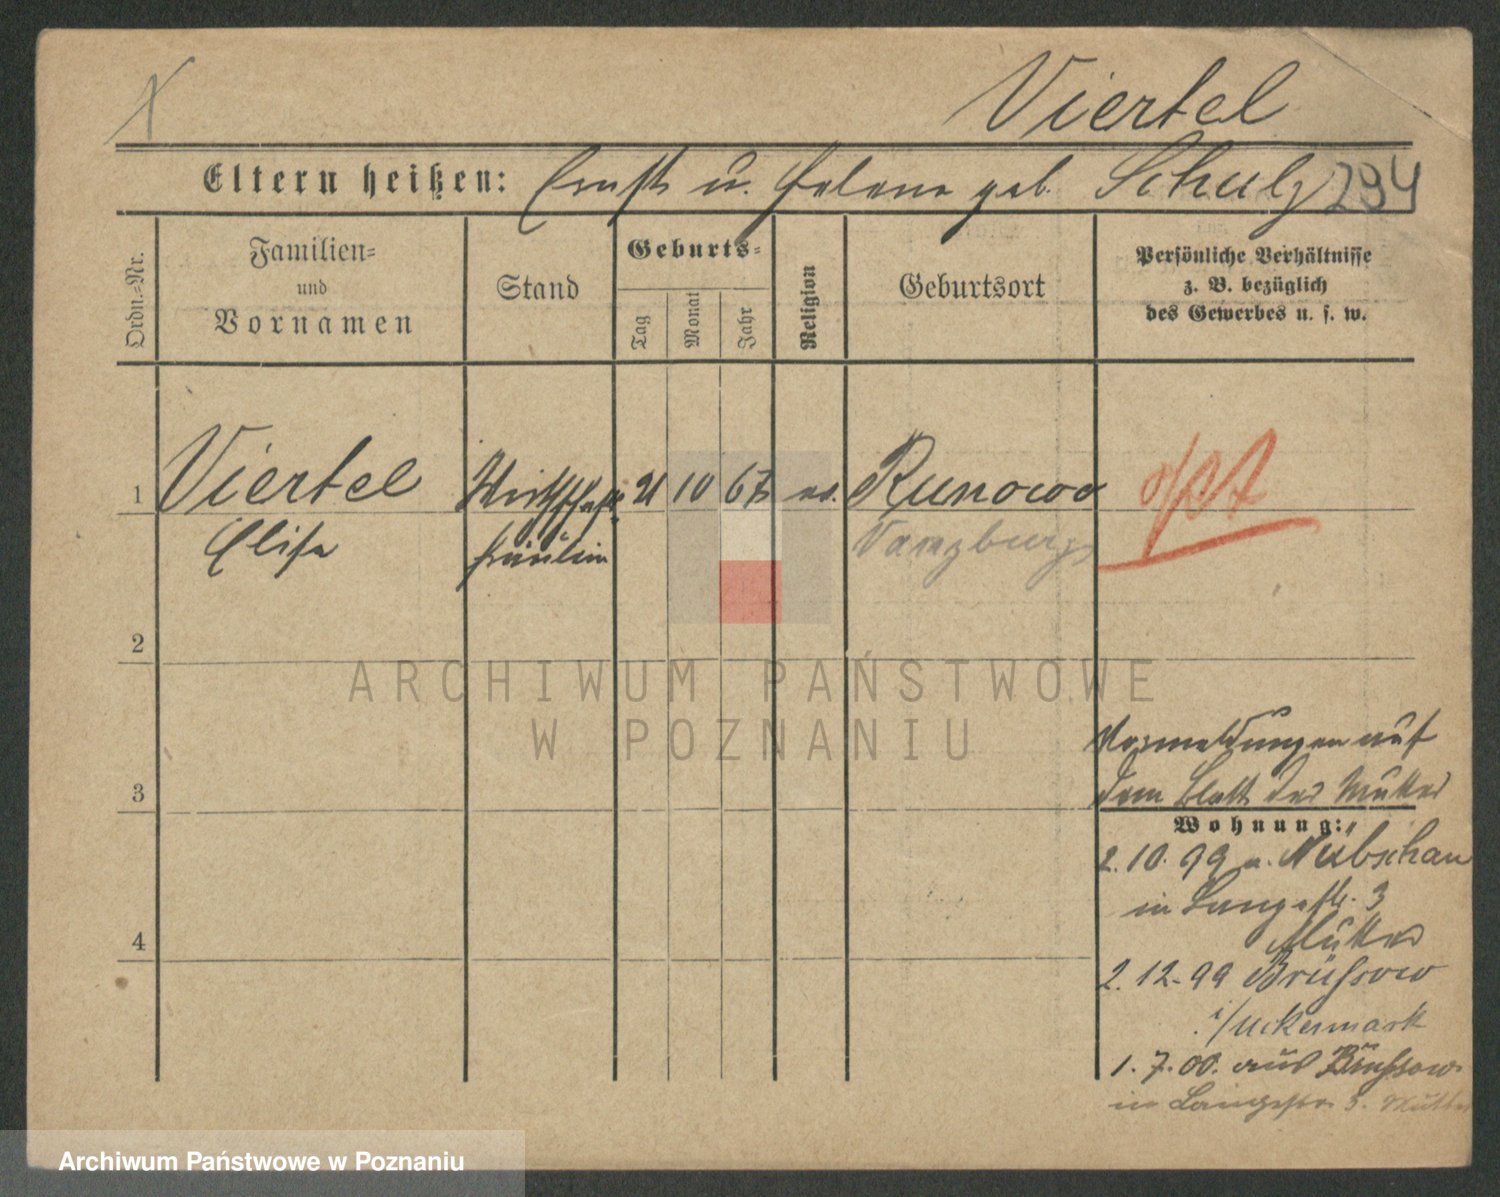 Viertel
Eltern heißen: Ernst u. Helene geb. Schulz 294
Ordn.-Nr.
Familien-
und
Vornamen
Stand
Geburts-
Tag
Monat
Jahr
Religion
Geburtsort
Persönliche Verhältnisse
z. B. bezüglich
des Gewerbes u. s. w.
1 Viertel Wirthschafts 21 10 67 ev. Runowo
Elise fräulein Vandsburg
2
3
4
Vormeldungen auf
dem Blatt der Mutter
Wohnung:
2.10.99 a. Nübschau
in Langestr. 3
Mutter
2.12.99 Brüssow
i/Uckermark
1.7.00. aus Brüssow
in Langestr. 3. Mutter
ARCHIWUM PAŃSTWOWE
W POZNANIU
Archiwum Państwowe w Poznaniu